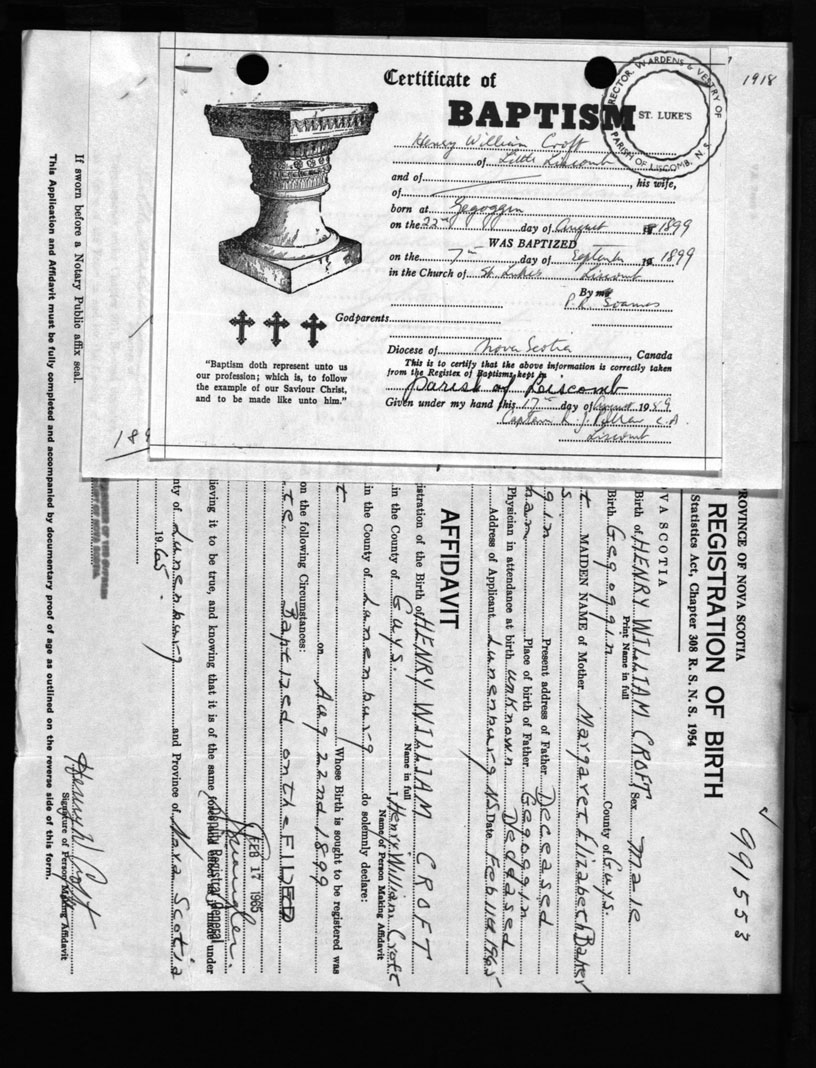 1918
Certificate of
BAPTISM
RECTOR, WARDENS & VESTRY OF
PARISH OF LISCOMB, N.S.
ST. LUKE'S
Henry William Croft
of Little Liscomb
and of, his wife,
of
born at Gegoggin
on the 22nd day of August 1899
WAS BAPTIZED
on the 7th day of September 1899
in the Church of St. Luke's Liscomb
By me
P.R. Soames
Godparents
Diocese of Nova Scotia, Canada
This is to certify that the above information is correctly taken
from the Register of Baptisms kept in
parish of Liscomb
Given under my hand this 17th day of August 1959
Captain R. J. C.A.
Liscomb
"Baptism doth represent unto us
our profession; which is, to follow
the example of our Saviour Christ,
and to be made like unto him."
189
PROVINCE OF NOVA SCOTIA
REGISTRATION OF BIRTH
Statistics Act, Chapter 308 R.S.N.S. 1954
991553
OVA SCOTIA
Birth of HENRY WILLIAM CROFT Sex Male
Print Name in full
Birth Gegoggin County of Guys.
MAIDEN NAME of Mother Margaret Elizabeth Baker
Present address of Father Deceased
Place of birth of Father Gegoggin
Physician in attendance at birth unknown Deceased
Address of Applicant Lunenburg NS Date Feb 11th 1965
AFFIDAVIT
istration of the Birth of HENRY WILLIAM CROFT
Name in full
in the County of Guys. I, Henry William Croft
Name of Person Making Affidavit
in the County of Lunenburg do solemnly declare:
Whose Birth is sought to be registered was
on Aug 22nd 1899
on the following Circumstances:
Baptized on the
FILED
FEB 17 1965
Deputy Registrar General
lieving it to be true, and knowing that it is of the same force and effect as if made under
nty of Lunenburg and Province of Nova Scotia
1965.
Henry W Croft
Signature of Person Making Affidavit
If sworn before a Notary Public affix seal.
This Application and Affidavit must be fully completed and accompanied by documentary proof of age as outlined on the reverse side of this form.